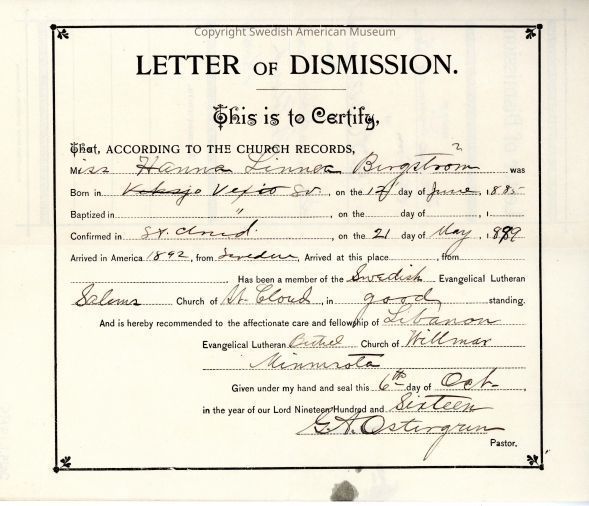 Copyright Swedish American Museum
LETTER OF DISMISSION.
This is to Certify,
That, ACCORDING TO THE CHURCH RECORDS,
Miss Hanna Linnea Bergström was
Born in Vexio Sv. , on the 12 day of June, 1885
Baptized in " , on the day of , 1
Confirmed in St. Cloud. , on the 21 day of May, 1899
Arrived in America 1892, from Sweden, Arrived at this place , from
Has been a member of the Swedish Evangelical Lutheran
Salems Church of St. Cloud , in good standing.
And is hereby recommended to the affectionate care and fellowship of Libanon
Evangelical Lutheran Church of Willmar
Minnesota
Given under my hand and seal this 6th day of Oct.
in the year of our Lord Nineteen Hundred and Sixteen
G.A. Ostergren
Pastor.